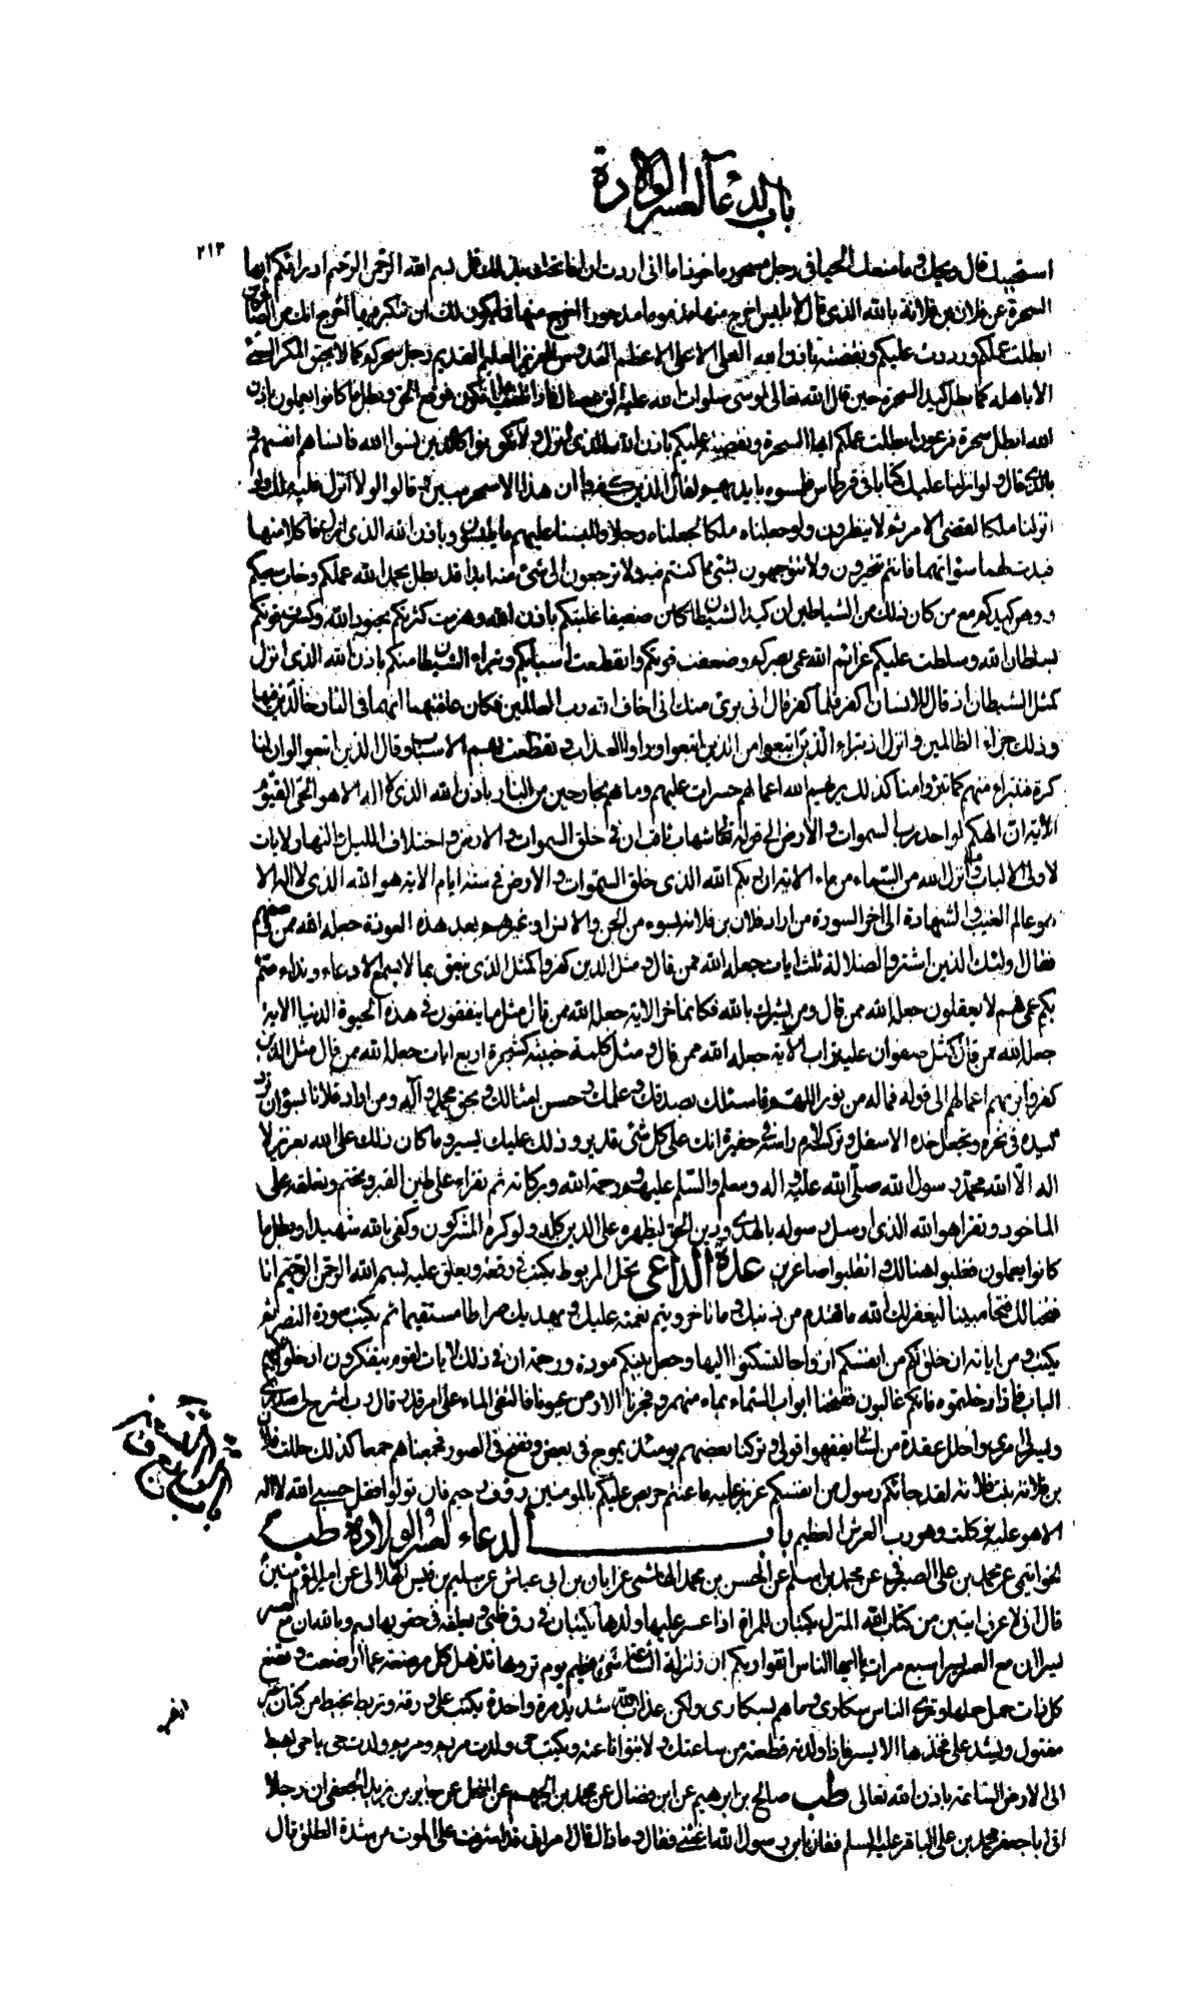 باب الدعآ لعسر الولادة
٢١٣
استجيبك قال ويحك وما منعك الحيا في رجل مسحور ماخوذ اما اني اردت ان افاتحك بذلك قل بسم الله الرحمن الرحيم ادرأتكم ايها
السحرة عن فلان بن فلانة بالله الذي قال لابليس اخرج منها مذموما مدحورا اخرج منها فما يكون لك ان تتكبر فيها فاخرج انك من الصاغرين
ابطلت عملكم ورددت عليكم ونقضته باذن الله العلي الاعلى الاعظم القدوس العزيز العليم القديم رجع سحركم كما لا يحيق المكر السيئ
الا باهله كما بطل كيد السحرة حين قال الله تعالى لموسى صلوات الله عليه الق عصاك فاذا هي تلقف ما يافكون فوقع الحق وبطل ما كانوا يعملون باذن
الله ابطل سحرة فرعون ابطلت عملكم ايها السحرة ونقضته عليكم باذن الله الذي انزل ولا تكونوا كالذين نسوا الله فانساهم انفسهم و
بالذي قال ولو نزلنا عليك كتابا في قرطاس فلمسوه بايديهم لقال الذين كفروا ان هذا الا سحر مبين وقالوا لولا انزل عليه ملك ولو
انزلنا ملكا لقضي الامر ثم لا ينظرون ولو جعلناه ملكا لجعلناه رجلا وللبسنا عليهم ما يلبسون وباذن الله الذي انزل فاكلا منها
فبدت لهما سواتهما فانتم تتحيرون ولا تتوجهون بشئ مما كنتم فيه ولا ترجعون الى شئ منه ابدا قد بطل بحمد الله عملكم وخاب سعيكم
ووهن كيدكم مع من كان ذلك من الشياطين ان كيد الشيطان كان ضعيفا غلبتكم باذن الله وهزمت كثرتكم بجنود الله وكسرت قوتكم
بسلطان الله وسلطت عليكم عزائم الله عمي بصركم وضعفت قوتكم وانقطعت اسبابكم وتبراء الشيطان منكم باذن الله الذي انزل
كمثل الشيطان اذ قال للانسان اكفر فلما كفر قال اني برئ منك اني اخاف الله رب العالمين فكان عاقبتهما انهما في النار خالدين فيها
وذلك جزاء الظالمين وانزل اذ تبراء الذين اتبعوا من الذين اتبعوا وراوا العذاب وتقطعت بهم الاسباب وقال الذين اتبعوا لو ان لنا
كرة فنتبراء منهم كما تبرؤا منا كذلك يريهم الله اعمالهم حسرات عليهم وما هم بخارجين من النار باذن الله الذي لا اله الا هو الحي القيوم
الآية ان الهكم لواحد رب السموات والارض الى قوله شهاب ثاقب ان في خلق السموات والارض واختلاف الليل والنهار لايات
لاولي الالباب وما انزل الله من السماء من ماء الاية ان ربكم الله الذي خلق السموات والارض في ستة ايام الاية هو الله الذي لا اله الا
هو عالم الغيب والشهادة الى اخر السورة من اراد فلان بن فلانة بسوء من الجن والانس او غيرهم بعد هذه العوذة جعله الله ممن وصفهم
فقال اولئك الذين اشتروا الضلالة ثلث ايات جعله الله ممن قال ومثل الذين كفروا كمثل الذي ينعق بما لا يسمع الا دعاء ونداء صم
بكم عمي فهم لا يعقلون جعله الله ممن قال ومن يشرك بالله فكانما خر الاية جعله الله ممن قال مثل ما ينفقون في هذه الحيوة الدنيا الاية
جعله الله ممن قال كمثل صفوان عليه تراب الآية جعله الله ممن قال ومثل كلمة خبيثة كشجرة اربع ايات جعله الله ممن قال مثل الذين
كفروا بربهم اعمالهم الى قوله فما له من نور اللهم فاسئلك بصدقك وعلمك وحسن امثالك وبحق محمد وآله ومن اراد فلانا بسوء ان ترد
كيده في نحره وتجعل خده الاسفل وتركسه لام راسه في حفيرة انك على كل شئ قدير وذلك عليك يسير وما كان ذلك على الله بعزيز لا
اله الا الله محمد رسول الله صلى الله عليه واله وسلم والسلم عليهم ورحمة الله وبركاته ثم تقراء على طين القبر وتختم وتعلقه على
الماخوذ وتقرا هو الله الذي ارسل رسوله بالهدى ودين الحق ليظهره على الدين كله ولو كره المشركون وكفى بالله شهيدا وبطل ما
كانوا يعملون فغلبوا هنالك وانقلبوا صاغرين عدة الداعي لحل المربوط يكتب في رقعة ويعلق عليه بسم الله الرحمن الرحيم انا
فتحنا لك فتحا مبينا ليغفر لك الله ما تقدم من ذنبك وما تاخر ويتم نعمته عليك ويهديك صراطا مستقيما ثم يكتب سورة النصر ثم
يكتب ومن اياته ان خلق لكم من انفسكم ازواجا لتسكنوا اليها وجعل بينكم مودة ورحمة ان في ذلك لايات لقوم يتفكرون ادخلوا عليهم
الباب فاذا دخلتموه فانكم غالبون ففتحنا ابواب السماء بماء منهمر وفجرنا الارض عيونا فالتقى الماء على امر قد قدر قال رب اشرح لي صدري
ويسر لي امري واحلل عقدة من لساني يفقهوا قولي وتركنا بعضهم يومئذ يموج في بعض ونفخ في الصور فجمعناهم جمعا كذلك حللت فلان
بن فلانة بنت فلانة لقد جائكم رسول من انفسكم عزيز عليه ما عنتم حريص عليكم بالمومنين رؤف رحيم فان تولوا فقل حسبي الله لا اله
الا هو عليه توكلت وهو رب العرش العظيم باب الدعاء لعسر الولادة طب
الخواتيمي عن محمد بن علي الصيرفي عن محمد بن اسلم عن الحسن بن محمد الهاشمي عن ابان بن ابي عياش عن سليم بن قيس الهلالي عن امير المؤمنين
قال اني لاعرف ايتين من كتاب الله المنزل يكتبان للمراة اذا عسر عليها ولدها يكتبان في رق ظبي ويعلقه في حقويها بسم الله وبالله ان مع العسر
يسرا ان مع العسر يسرا سبع مرات يا ايها الناس اتقوا ربكم ان زلزلة الساعة شئ عظيم يوم ترونها تذهل كل مرضعة عما ارضعت وتضع
كل ذات حمل حملها وترى الناس سكارى وما هم بسكارى ولكن عذاب الله شديد مرة واحدة يكتب على ورقة وتربط بخيط من كتان غير
مفتول ويشد على فخذها الايسر فاذا ولدته قطعته من ساعتك ولا تتوانا عنه ويكتب حي ولدت مريم ومريم ولدت حي يا حي اهبط
الى الارض الساعة باذن الله تعالى طب صالح بن ابرهيم عن ابن فضال عن محمد بن الجهم عن المنخل عن جابر بن يزيد الجعفي ان رجلا
اتى ابا جعفر محمد بن علي الباقر عليه السلم فقال يا بن رسول الله اغثني فقال وما ذاك قال امراتي قد اشرفت على الموت من شدة الطلق قال